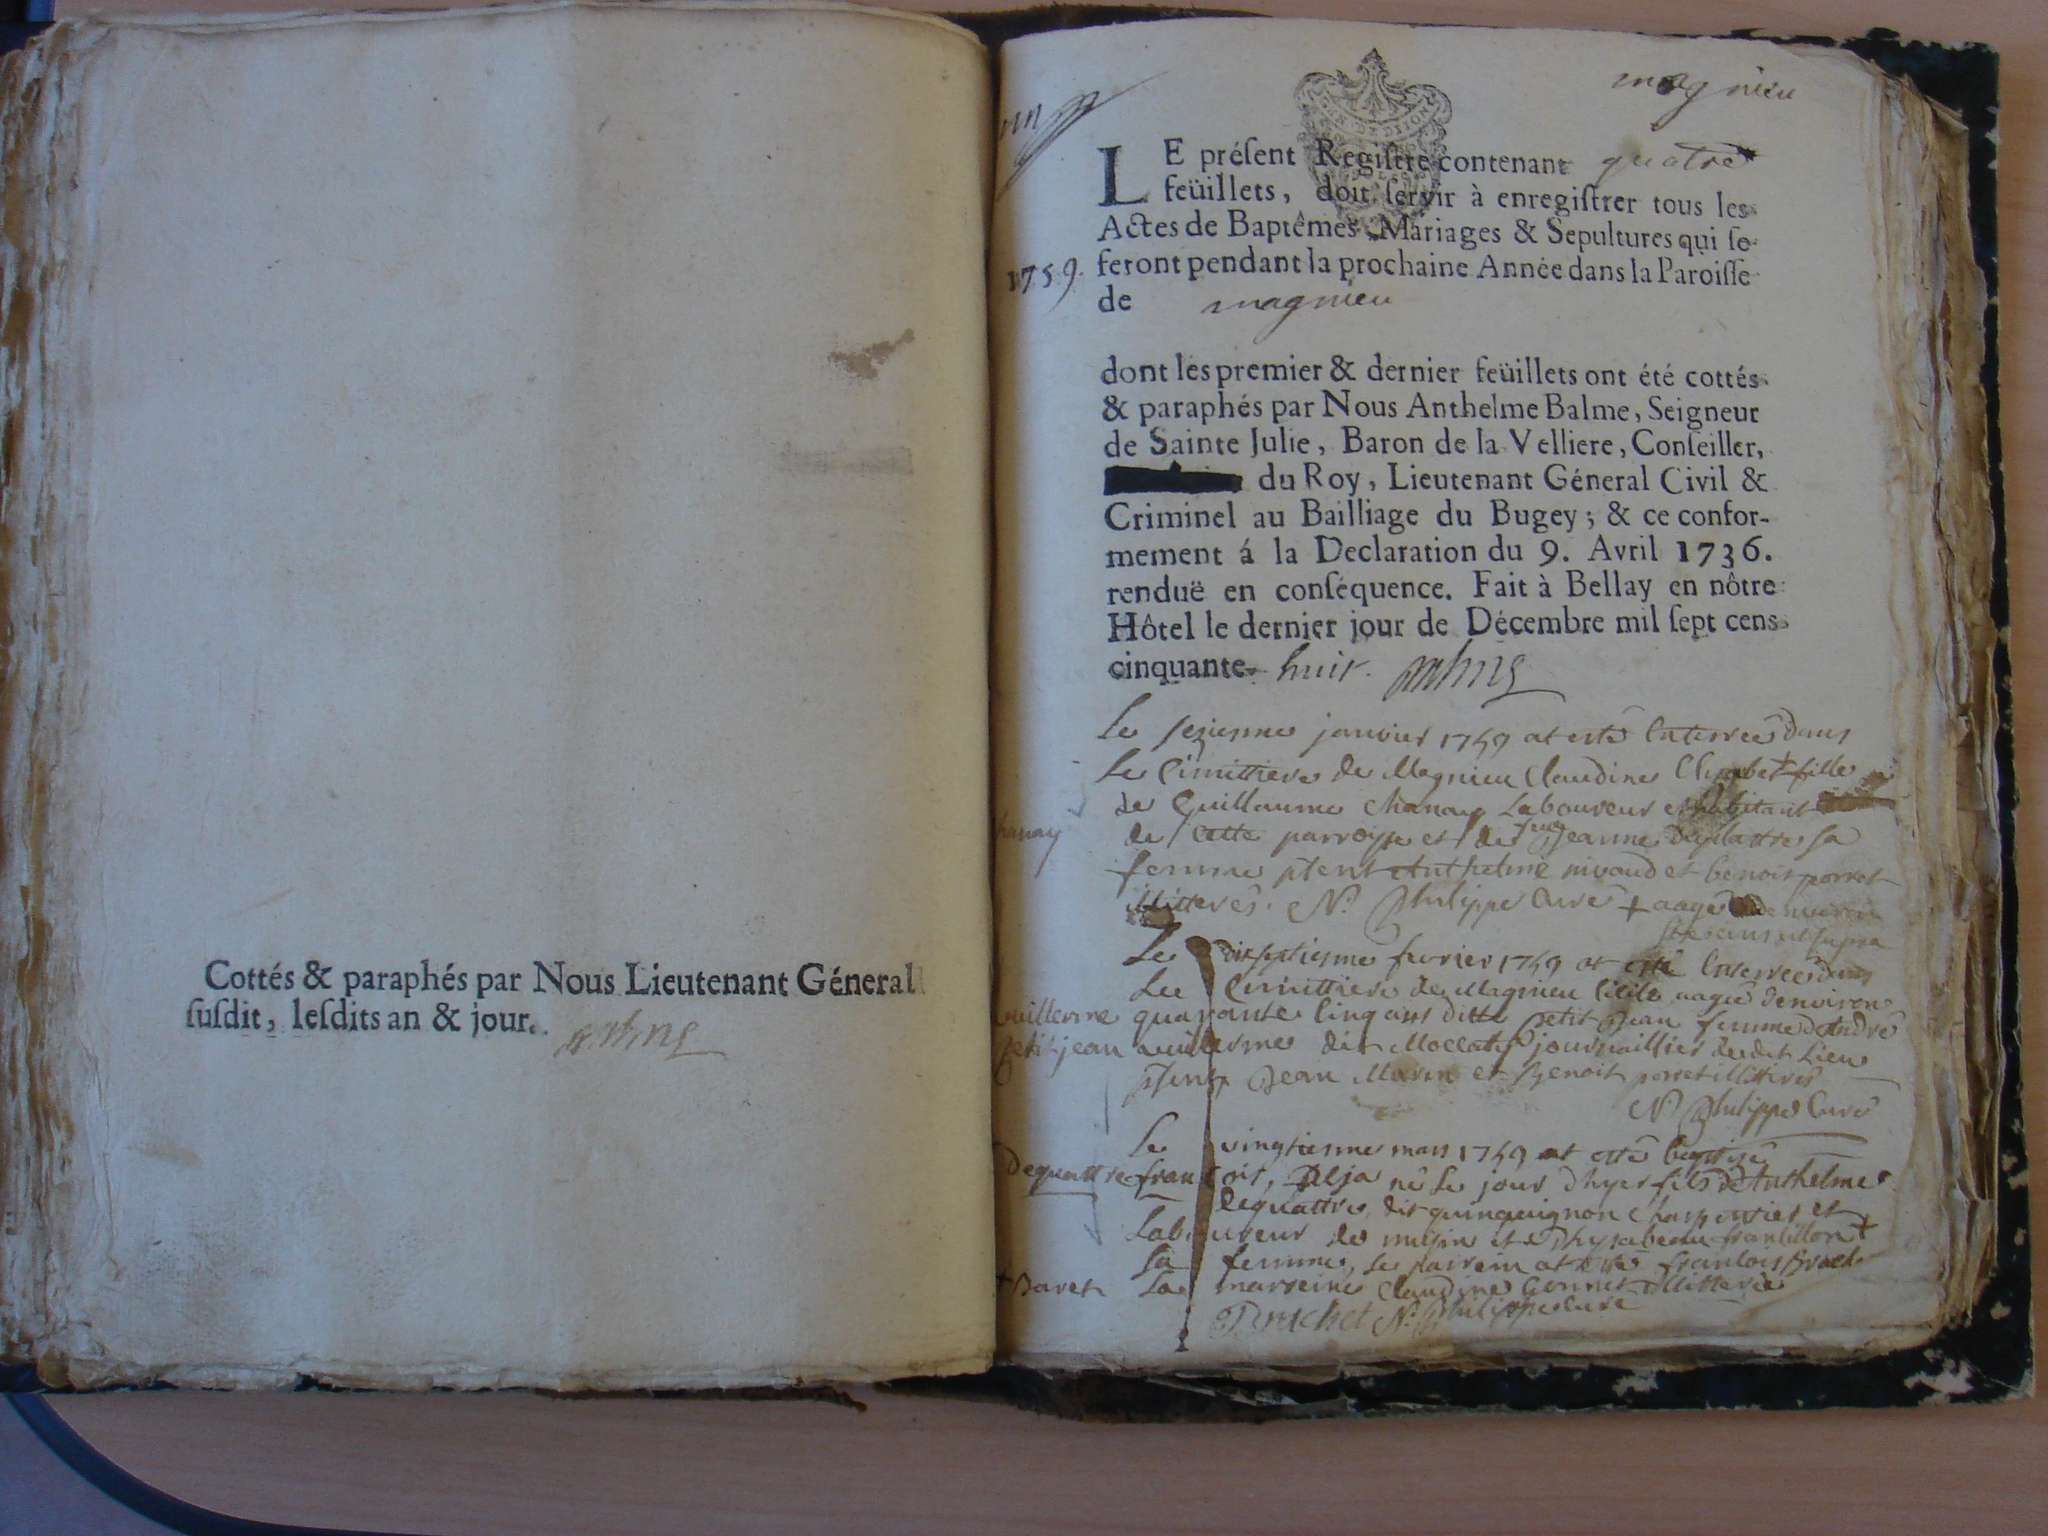 Cottés & paraphés par Nous Lieutenant Géneral
ſuſdit, leſdits an & jour.
magnieu
LE préſent Regiſtre contenant quatre
feüillets, doit ſervir à enregiſtrer tous les
Actes de Baptêmes Mariages & Sepultures qui ſe
1759. feront pendant la prochaine Année dans la Paroiſſe
de magnieu
dont les premier & dernier feüillets ont été cottés
& paraphés par Nous Anthelme Balme, Seigneur
de Sainte Julie, Baron de la Velliere, Conſeiller,
du Roy, Lieutenant Géneral Civil &
Criminel au Bailliage du Bugey; & ce confor-
mement á la Declaration du 9. Avril 1736.
renduë en conſéquence. Fait à Bellay en nôtre
Hôtel le dernier jour de Décembre mil ſept cens
cinquante- huit.
Le sezienne janvier 1759 at esté Enterreé dans
Le Cimittiere de Magnieu Claudine fille
de Guillaume Chanay Laboureur et habitant
de Cette parroisse et de feue Jeanne sa
femme pñt Anthelme nivaud et benoit porret
illitteres. N. Philippe Curé + aageé denviron
ans ut supra
Le dixseptienne fevrier 1759 at esté Enterreé dans
Le Cimittiere de Magnieu aageé denviron
quarante Cinq ans ditte petit Jean femme dAndré
petit jean dit journaillier dudit Lieu
Jean Marin et Benoit porret illitteres
N Philippe Curé
Le vingtienne mars 1759 at esté baptisé
Dequattre francois, Deja né Le jour dhyer fils dAnthelme
dequattre, dit Charpentier et
Laboureur de et
sa femme, Le pairein at esté francois
La marreine Claudine illitterée
Bruchet N. Philippe Curé